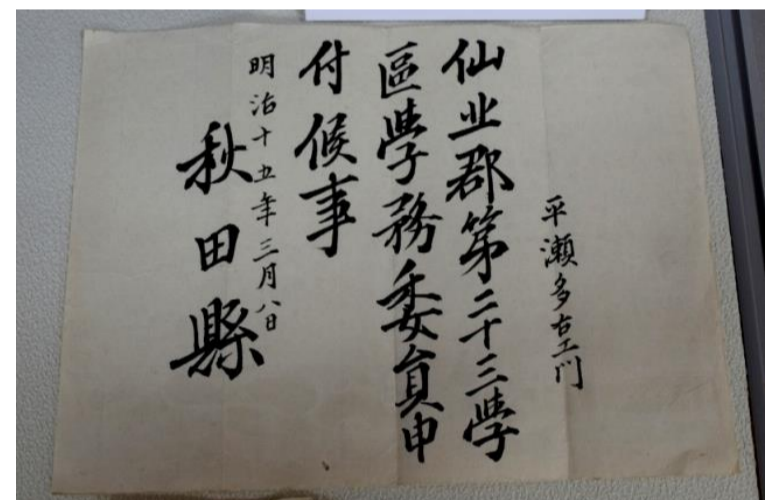 平瀬多右工門
仙北郡第二十三學
區學務委員申
付候事
明治十五年三月八日
秋田縣